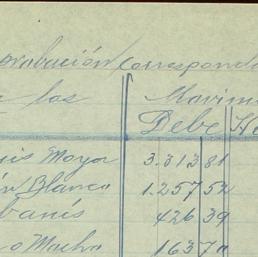 robación correspond
los Movim
Debe H
uis Moya 3.313 81
n Blanco 1.257 52
banís 426 39
o Macho 163 70